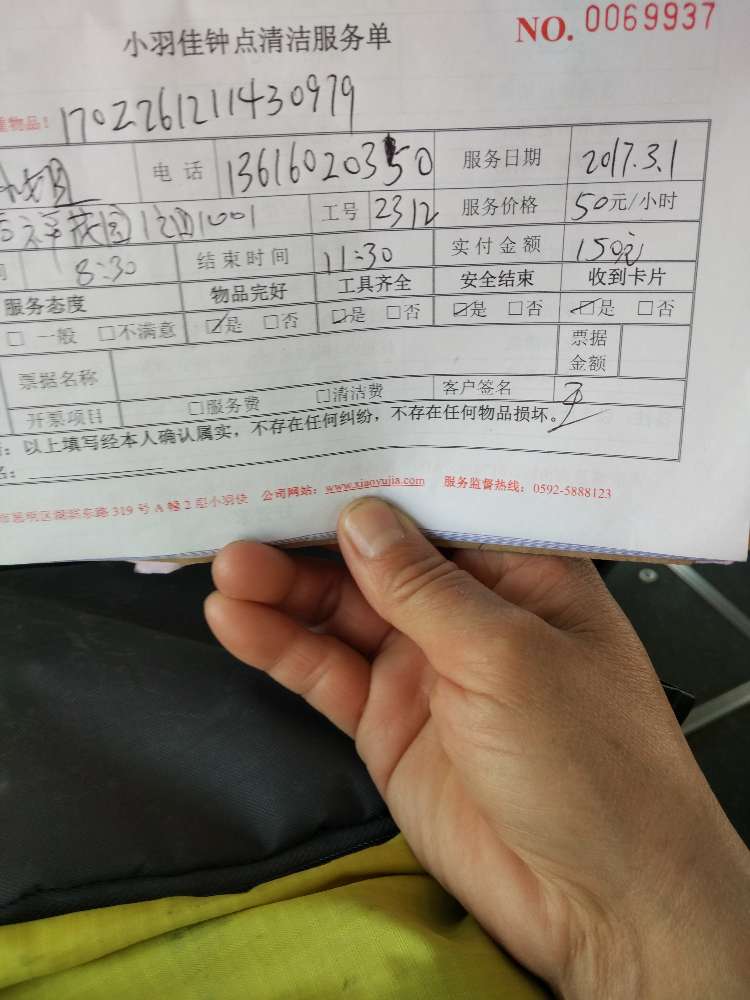 小羽佳钟点清洁服务单 NO. 0069937
物品! 1702261211430979
电话 13616020350 服务日期 2017.3.1
12 1001 工号 2312 服务价格 50元/小时
8:30 结束时间 11:30 实付金额 150元
服务态度 物品完好 工具齐全 安全结束 收到卡片
□ 一般 □不满意 ☑是 □否 ☑是 □否 ☑是 □否 ☑是 □否
票据名称 票据金额
开票项目 □服务费 □清洁费 客户签名
:以上填写经本人确认属实,不存在任何纠纷,不存在任何物品损坏。
名:
路 319 号 A 幢 2 小羽佳 公司网站:www.xiaoyujia.com 服务监督热线:0592-5888123